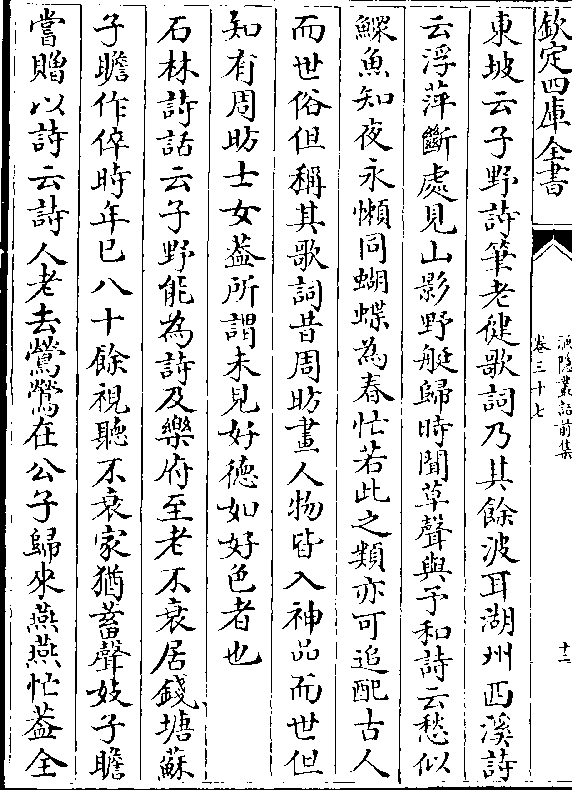 欽定四庫全書
漁隱叢話前集
卷三十七
十二
東坡云子野詩筆老健歌詞乃其餘波耳湖州西溪詩
云浮萍斷處見山影野艇歸時聞草聲與予和詩云愁似
鰥魚知夜永懶同蝴蝶為春忙若此之類亦可追配古人
而世俗但稱其歌詞昔周昉畫人物皆入神品而世但
知有周昉士女葢所謂未見好德如好色者也
石林詩話云子野能為詩及樂府至老不衰居錢塘蘇
子瞻作倅時年已八十餘視聽不衰家猶蓄聲妓子瞻
嘗贈以詩云詩人老去鶯鶯在公子歸來燕燕忙葢全